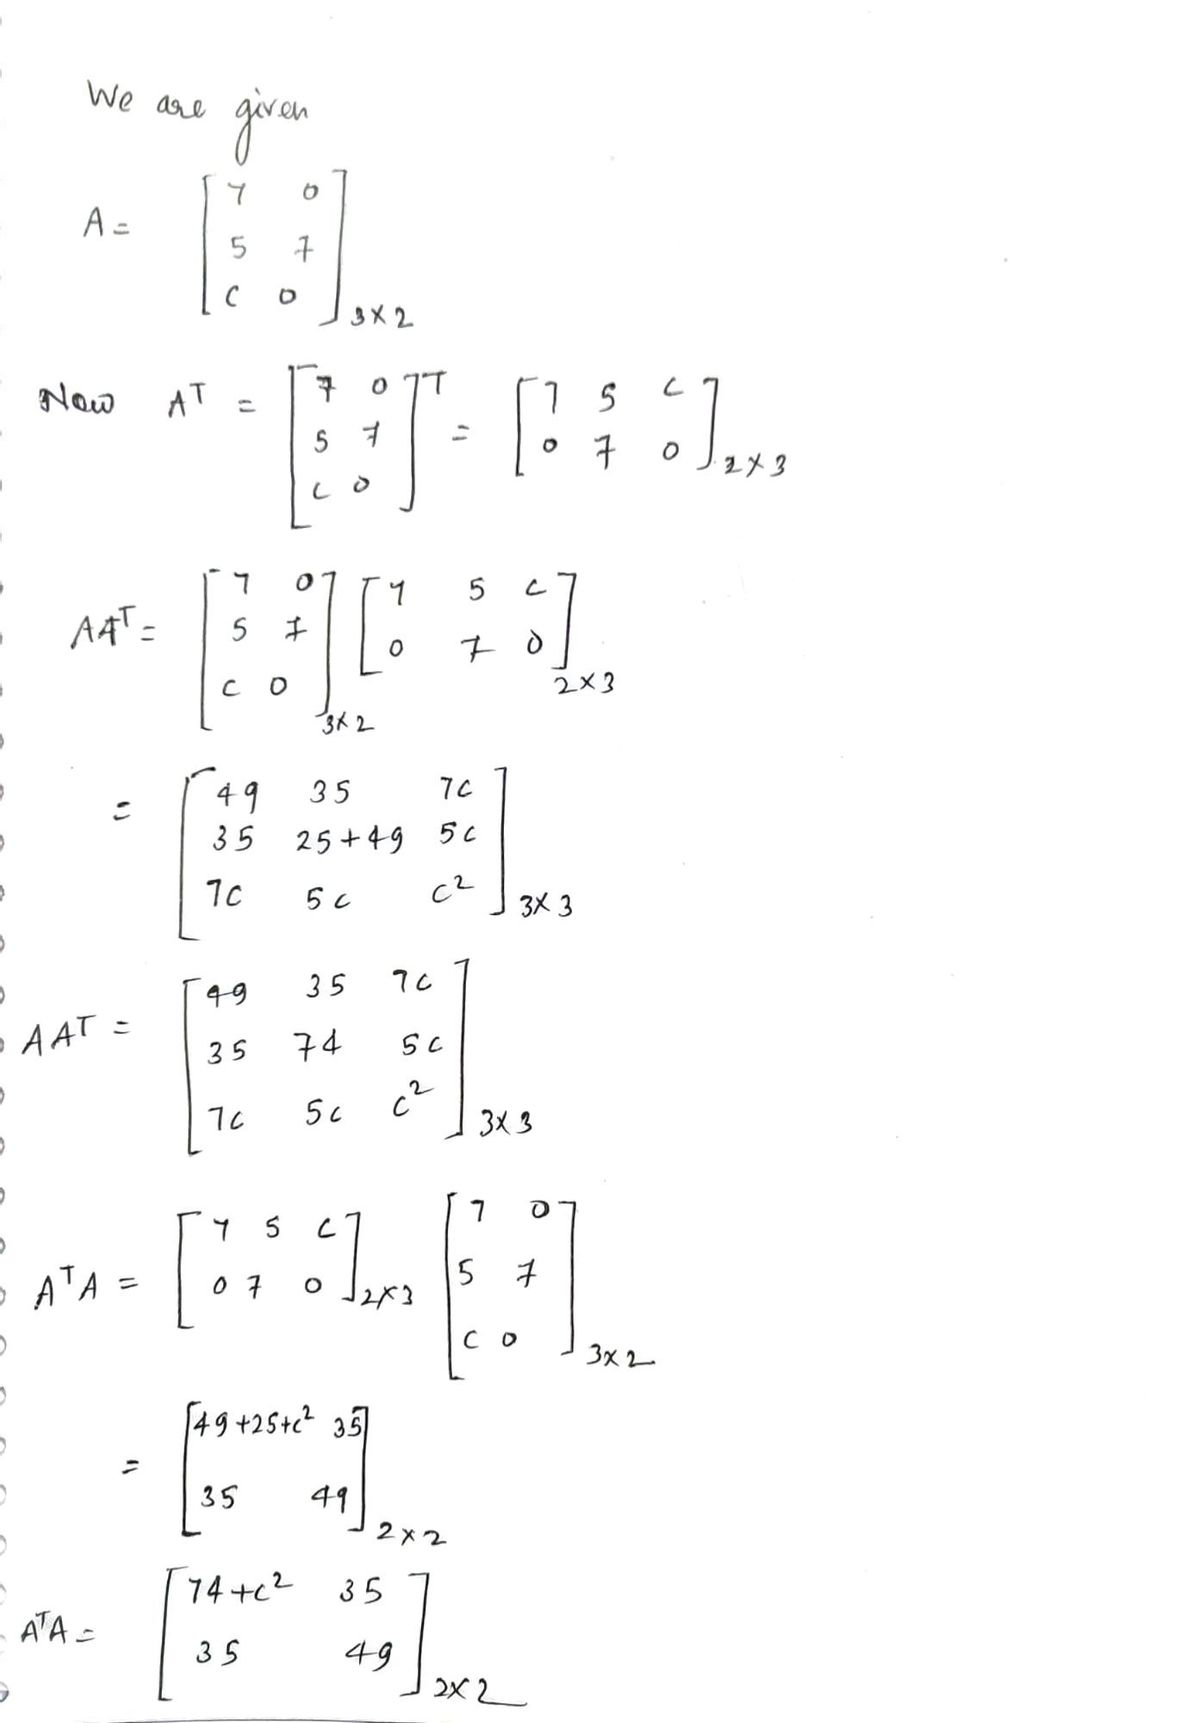 We are given
A = [ 7 0
5 7
c 0 ] 3×2
Now Aᵀ = [ 7 0
5 7
c 0 ]ᵀ = [ 7 5 c
0 7 0 ] 2×3
AAᵀ = [ 7 0
5 7
c 0 ] 3×2 [ 7 5 c
0 7 0 ] 2×3
= [ 49 35 7c
35 25+49 5c
7c 5c c² ] 3×3
AAᵀ = [ 49 35 7c
35 74 5c
7c 5c c² ] 3×3
AᵀA = [ 7 5 c
0 7 0 ] 2×3 [ 7 0
5 7
c 0 ] 3×2
= [ 49+25+c² 35
35 49 ] 2×2
AᵀA = [ 74+c² 35
35 49 ] 2×2